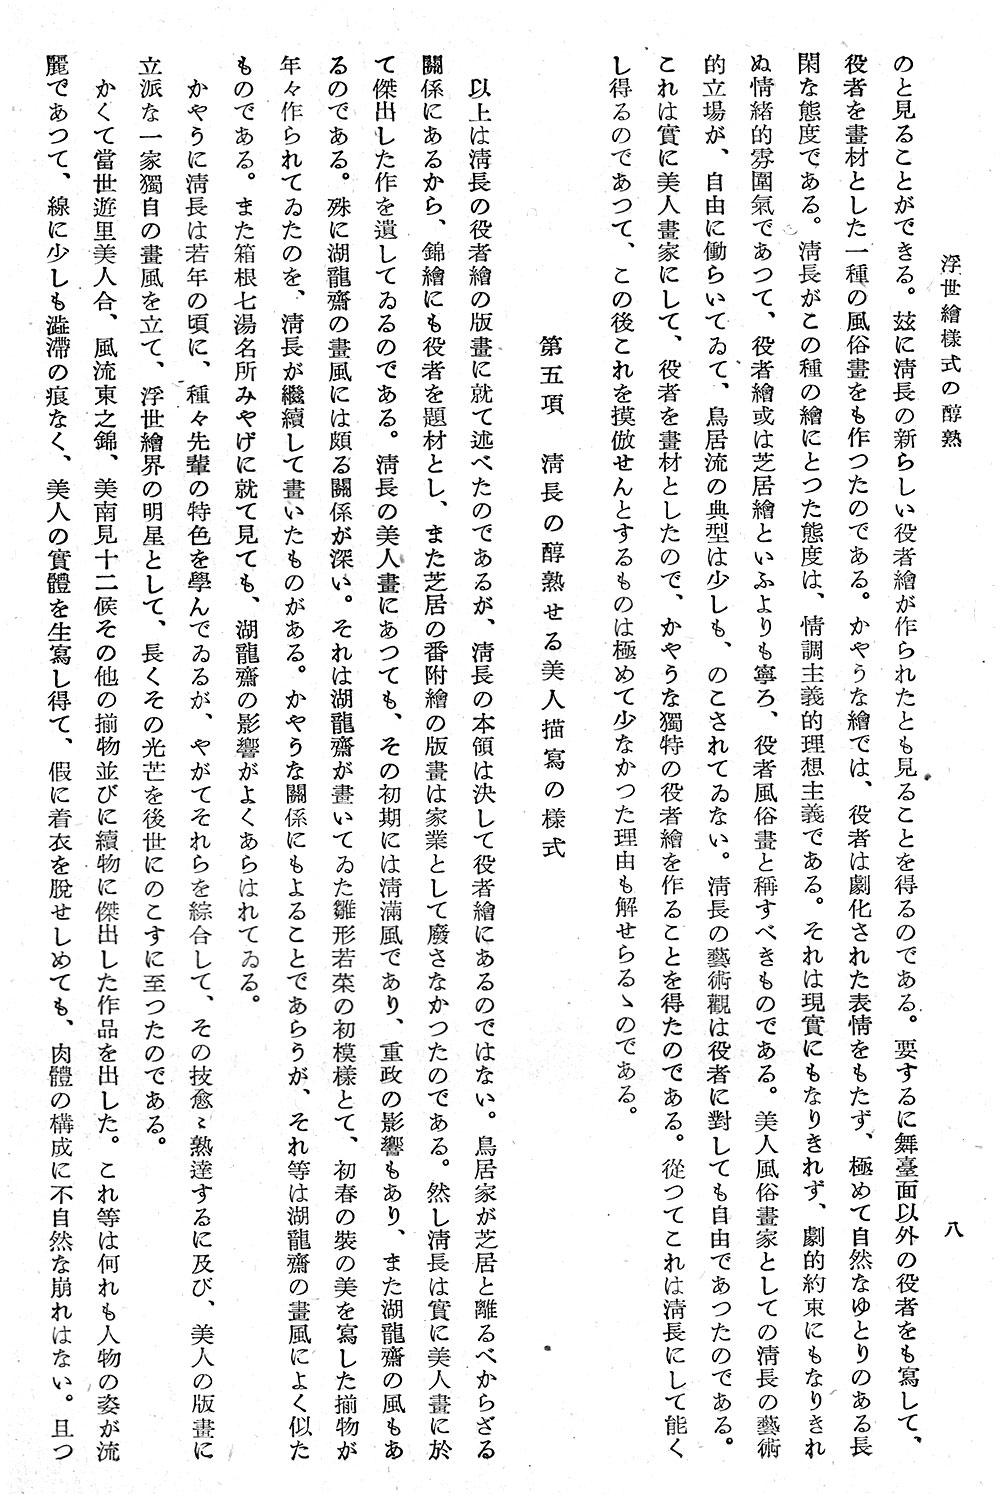 浮世繪樣式の醇熟
八
のと見ることができる。玆に淸長の新らしい役者繪が作られたとも見ることを得るのである。要するに舞臺面以外の役者をも寫して、
役者を畫材とした一種の風俗畫をも作つたのである。かやうな繪では、役者は劇化された表情をもたず、極めて自然なゆとりのある長
閑な態度である。淸長がこの種の繪にとつた態度は、情調主義的理想主義である。それは現實にもなりきれず、劇的約束にもなりきれ
ぬ情緒的雰圍氣であつて、役者繪或は芝居繪といふよりも寧ろ、役者風俗畫と稱すべきものである。美人風俗畫家としての淸長の藝術
的立場が、自由に働らいてゐて、鳥居流の典型は少しも、のこされてゐない。淸長の藝術觀は役者に對しても自由であつたのである。
これは實に美人畫家にして、役者を畫材としたので、かやうな獨特の役者繪を作ることを得たのである。從つてこれは淸長にして能く
し得るのであつて、この後これを摸倣せんとするものは極めて少なかつた理由も解せらるゝのである。
第五項　淸長の醇熟せる美人描寫の樣式
以上は淸長の役者繪の版畫に就て述べたのであるが、淸長の本領は決して役者繪にあるのではない。鳥居家が芝居と離るべからざる
關係にあるから、錦繪にも役者を題材とし、また芝居の番附繪の版畫は家業として廢さなかつたのである。然し淸長は實に美人畫に於
て傑出した作を遺してゐるのである。淸長の美人畫にあつても、その初期には淸滿風であり、重政の影響もあり、また湖龍齋の風もあ
るのである。殊に湖龍齋の畫風には頗る關係が深い。それは湖龍齋が畫いてゐた雛形若菜の初模樣とて、初春の裝の美を寫した揃物が
年々作られてゐたのを、淸長が繼續して畫いたものがある。かやうな關係にもよることであらうが、それ等は湖龍齋の畫風によく似た
ものである。また箱根七湯名所みやげに就て見ても、湖龍齋の影響がよくあらはれてゐる。
かやうに淸長は若年の頃に、種々先輩の特色を學んでゐるが、やがてそれらを綜合して、その技愈〻熟達するに及び、美人の版畫に
立派な一家獨自の畫風を立て、浮世繪界の明星として、長くその光芒を後世にのこすに至つたのである。
かくて當世遊里美人合、風流東之錦、美南見十二候その他の揃物並びに續物に傑出した作品を出した。これ等は何れも人物の姿が流
麗であつて、線に少しも澁滯の痕なく、美人の實體を生寫し得て、假に着衣を脫せしめても、肉體の構成に不自然な崩れはない。且つ